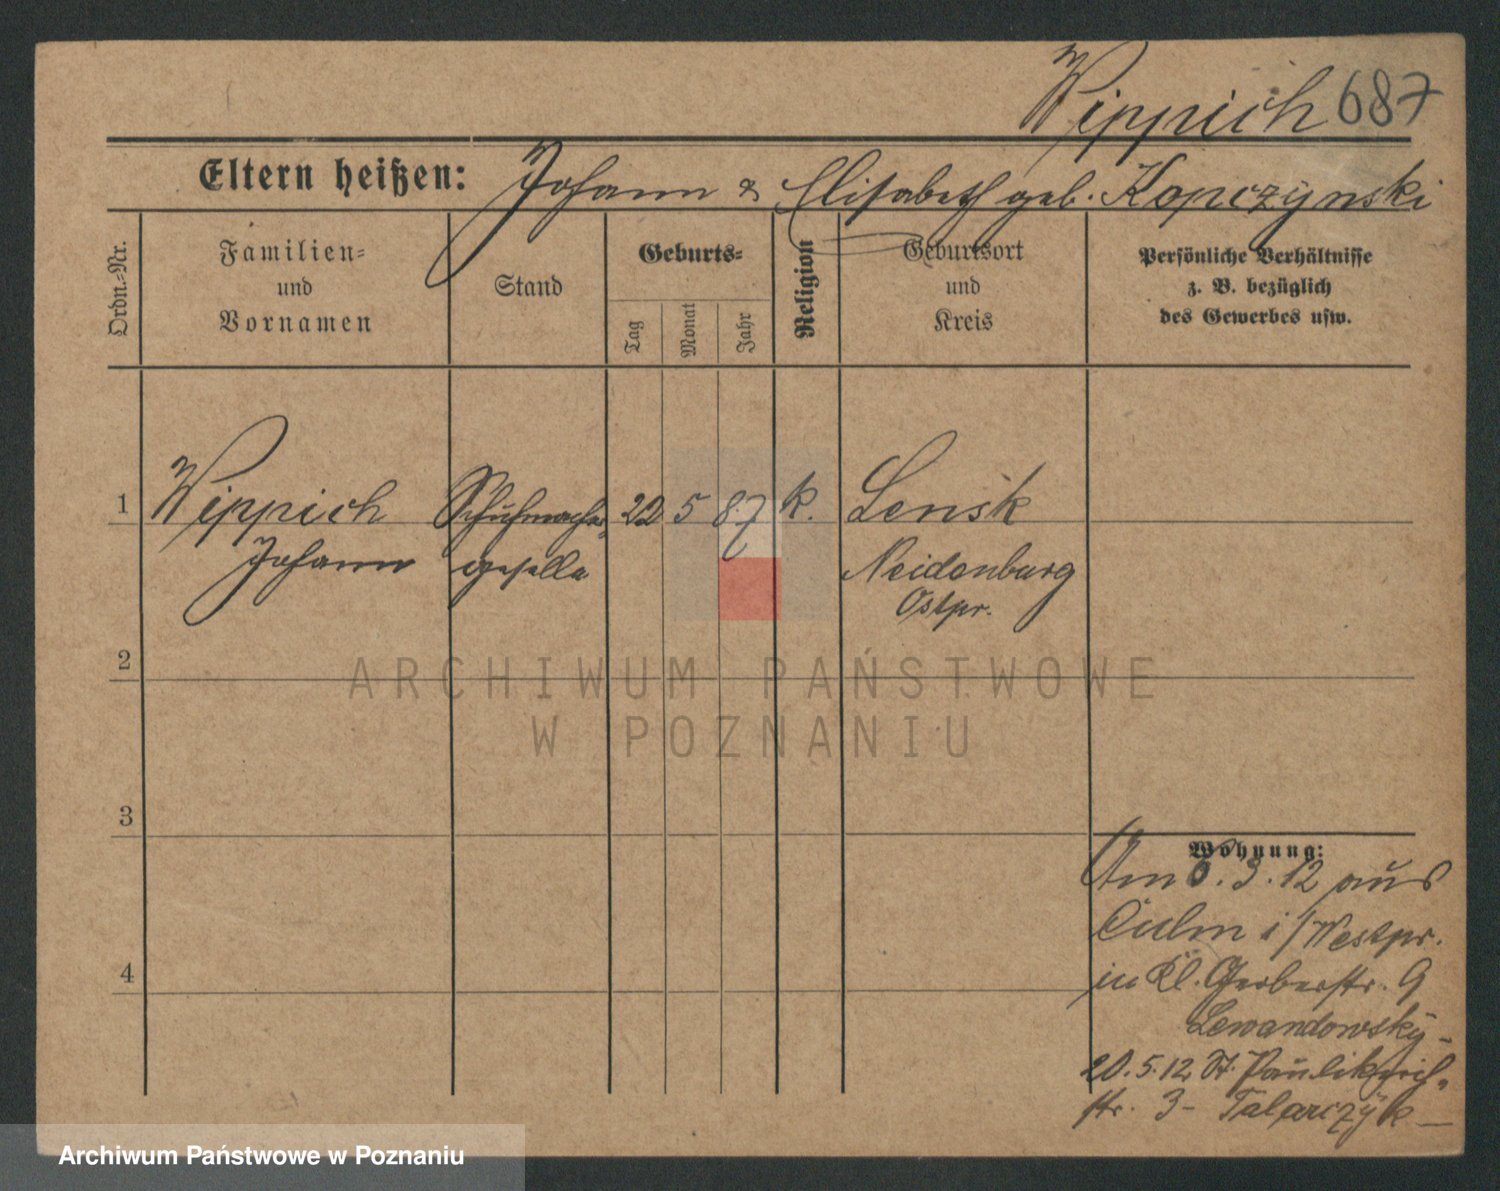 Wippich 687
Eltern heißen: Johann & Elisabeth geb. Kopczynski
Ordn.-Nr.
Familien-
und
Vornamen
Stand
Geburts-
Tag
Monat
Jahr
Religion
Geburtsort
und
Kreis
Persönliche Verhältnisse
z. B. bezüglich
des Gewerbes usw.
1 Wippich Schuhmacher- 22 5 87 k. Lensk
Johann geselle Neidenburg
Ostpr.
2
3
4
Wohnung:
Am 6.3.12 aus
Culm i/Westpr.
in Kl. Gerberstr. 9
Lewandowsky-
20.5.12 St. Paulikirch-
str. 3- Talarczyk
ARCHIWUM PAŃSTWOWE
W POZNANIU
Archiwum Państwowe w Poznaniu